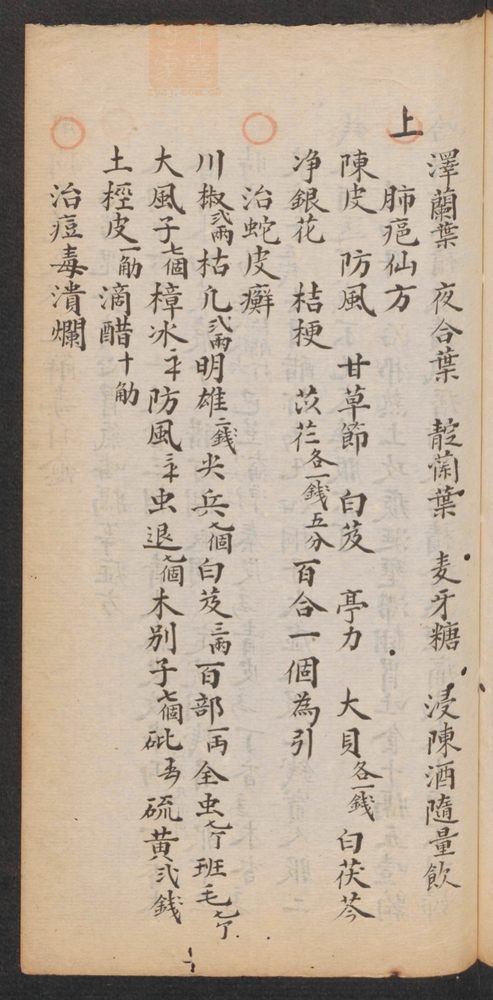 上
澤蘭葉 夜合葉 靛蘭葉 麦牙糖 浸陳酒隨量飲
肺疤仙方
陳皮 防風 甘草節 白芨 亭力 大貝各一錢 白茯苓
净銀花 桔梗 苡苡各一錢五分 百合一個為引
治蛇皮癬
川椒弍兩 枯凢弍兩 明雄二錢 尖兵七個 白芨三兩 百部一両 全虫七个 班毛七个
大風子七個 樟冰 防風 虫退七個 木別子七個 砒 硫黄弍錢
土桱皮一觔 滴醋十觔
治痘毒潰爛